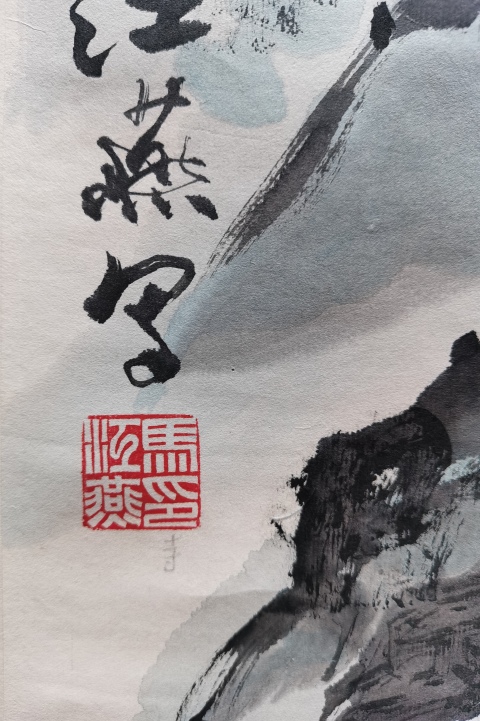 江燕写
馬江燕印